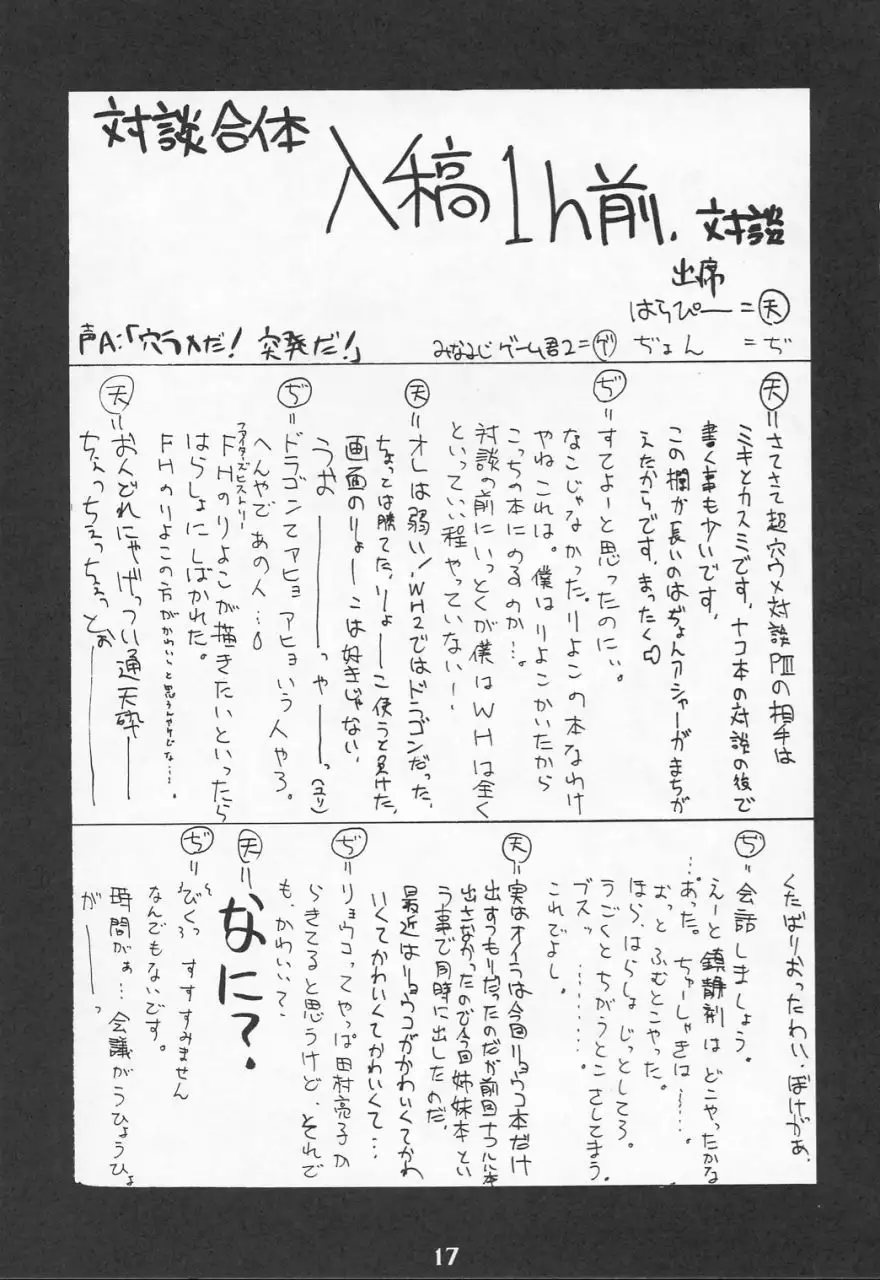 対談合体
入稿1h前.対談
出席
はらぴー=天
声A:「穴ラメだ! 突発だ!」
みなみじゲーム君2=ゲ ぢょん =ぢ
天=さてさて超穴ウメ対談PⅢの相手は
ミキとカスミです、ナコ本の対談の後で
書く事も少いです、
この欄が長いのはぢょんアシャーがまちが
えたからです、まったく
ぢ=すてよーと思ったのにぃ。
なこじゃなかった。りよこの本なわけ
やねこれは。僕はりよこかいたから
こっちの本にのるのか…。
対談の前にいっとくが僕はWHは全く
といっていい程やっていないー、
天=オレは弱い!、WH2ではドラゴンだった、
ちょっとは勝てた、りょーこ使うと負けた、
画面のりょーこは好きじゃない、
うおーーっやーーっ(ユリ)
ぢ=ドラゴンてアヒョアヒョいう人やろ。
へんやであの人…。
ファイターズヒストリー
FHのりよこが描きたいといったら
はらしょにしばかれた。
FHのりよこの方がかわいいと思うんやけどな…。
天=おんどれにゃげっつい通天砕ーー
ちぇっちぇっちぇっとぉーー
くたばりおったわい・ぼけがぁ、
ぢ=会話しましょう。
えーと鎮静剤はどこやったかな
…あった。ちゅーしゃきは……。
おっとふむとこやった。
ほら、はらしょじっとしてろ。
うごくとちがうとこさしてまう。
ブスッ………。
これでよし。
天=実はオイラは今回リョウコ本だけ
出すつもりだったのだが前回ナコルル本
出さなかったので今回姉妹本とい
う事で同時に出したのだ、
最近はリョウコがかわいくてかわ
いくてかわいくてかわいくて…
ぢ=リョウコってやっぱ田村亮子か
らきてると思うけど、それで
も、かわいい?、
天=なに?、
ぢ=びくっ すすすみません
なんでもないです。
時間がぁ…会議がうひょうひょ
がーーっ
17